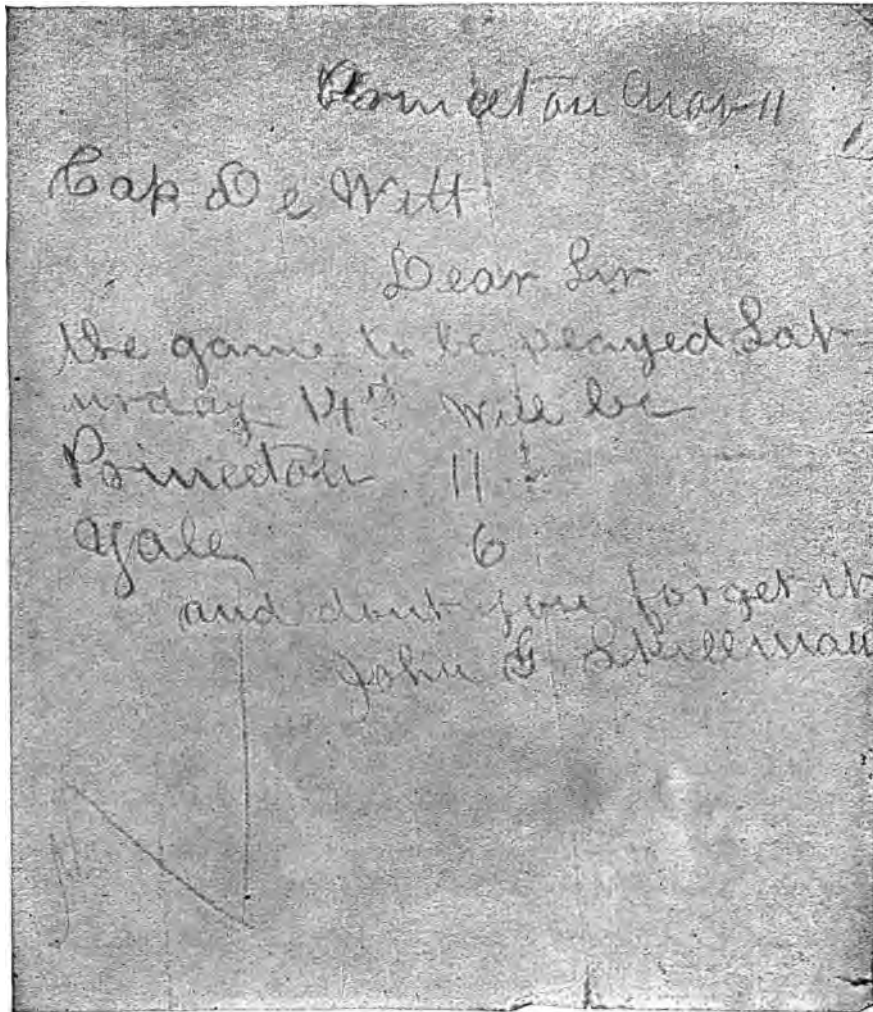 Princeton Nov 11
Cap De Witt
Dear Sir
the game to be played Sat-
urday 14th will be
Princeton 11
Yale 6
and dont you forget it
John G. Skillman